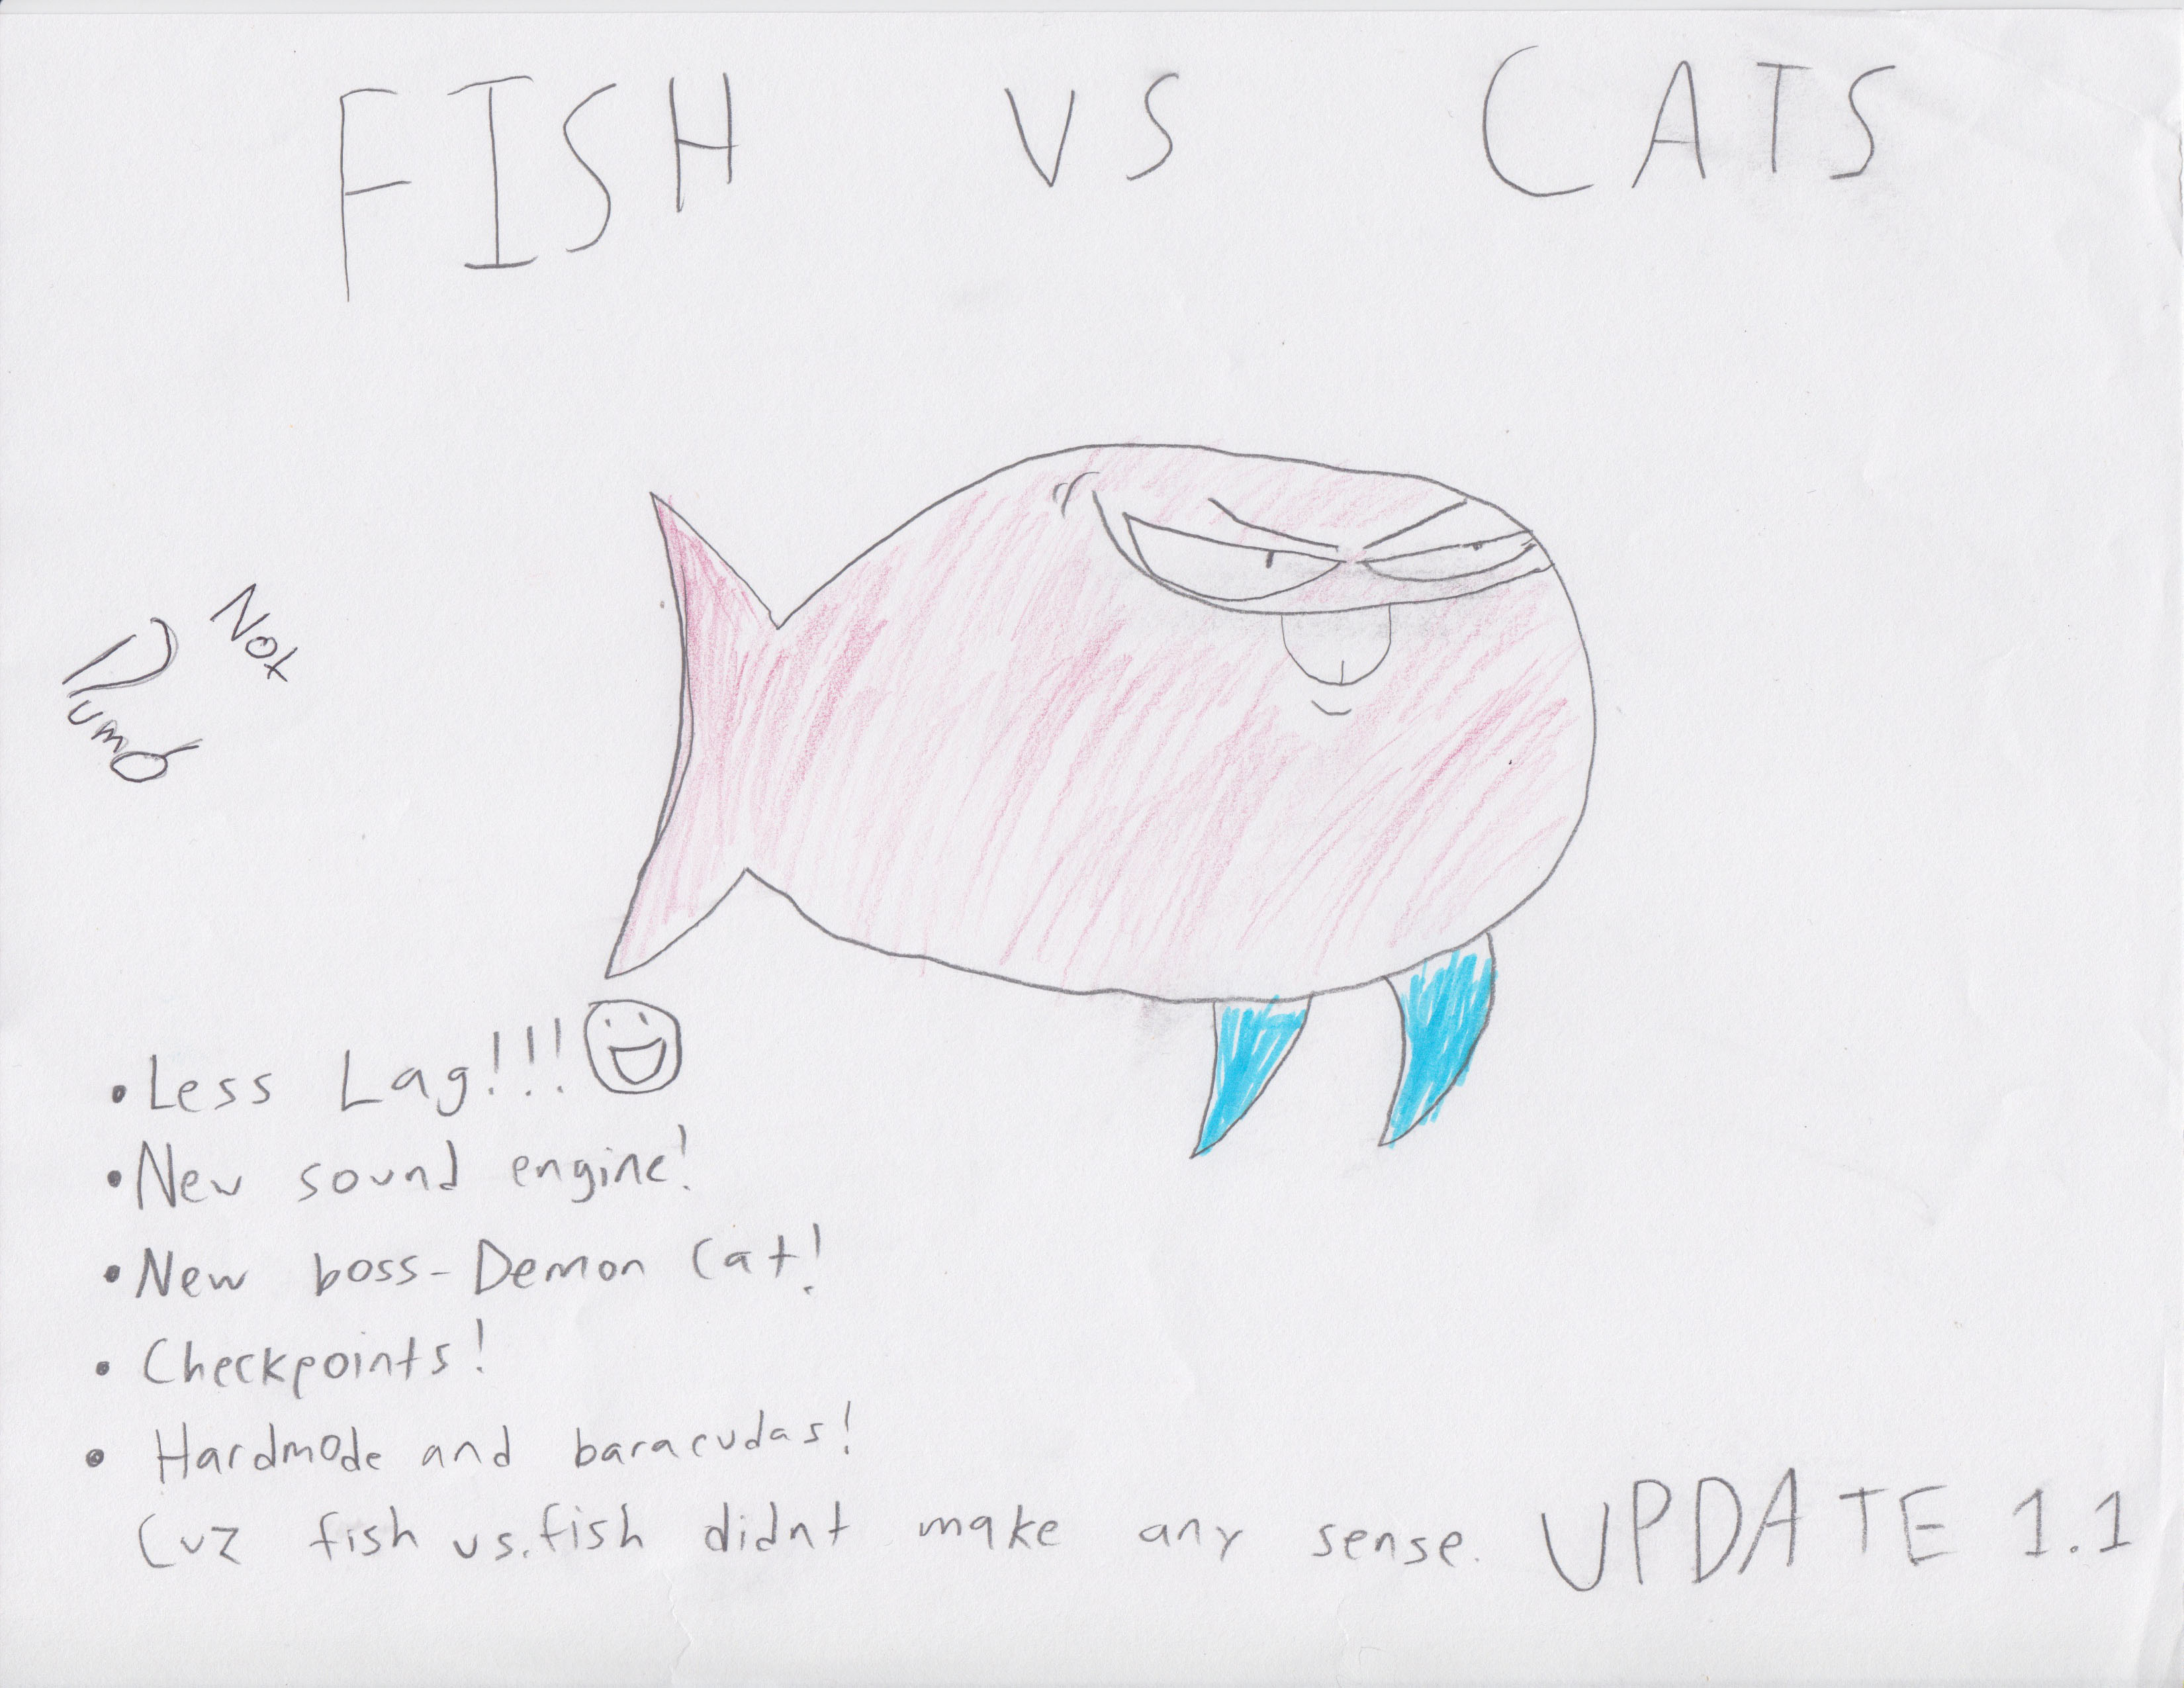 FISH VS CATS
Not
Dumb
• Less Lag!!!
• New sound engine!
• New boss- Demon Cat!
• Checkpoints!
• Hardmode and baracudas!
Cuz fish vs. fish didnt make any sense.
UPDATE 1.1